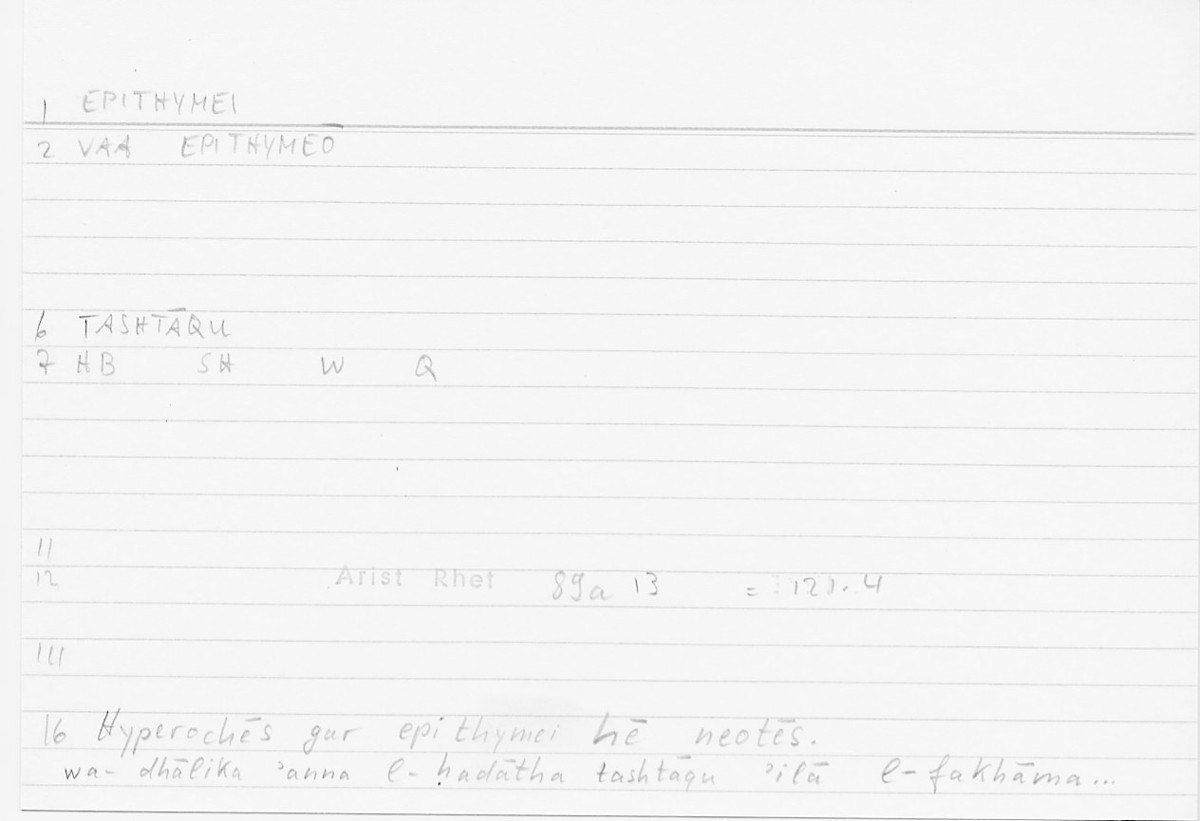 1 EPITHYMEI
2 VAA EPITHYMEŌ
6 TASHTĀQU
7 HB SH W Q
11
12 Arist Rhet 89a 13 = 4
14
16 Hyperochēs gar epithymei hē neotēs.
wa- dhālika ʾanna l-ḥadātha tashtāqu ʾilā l-fakhāma...